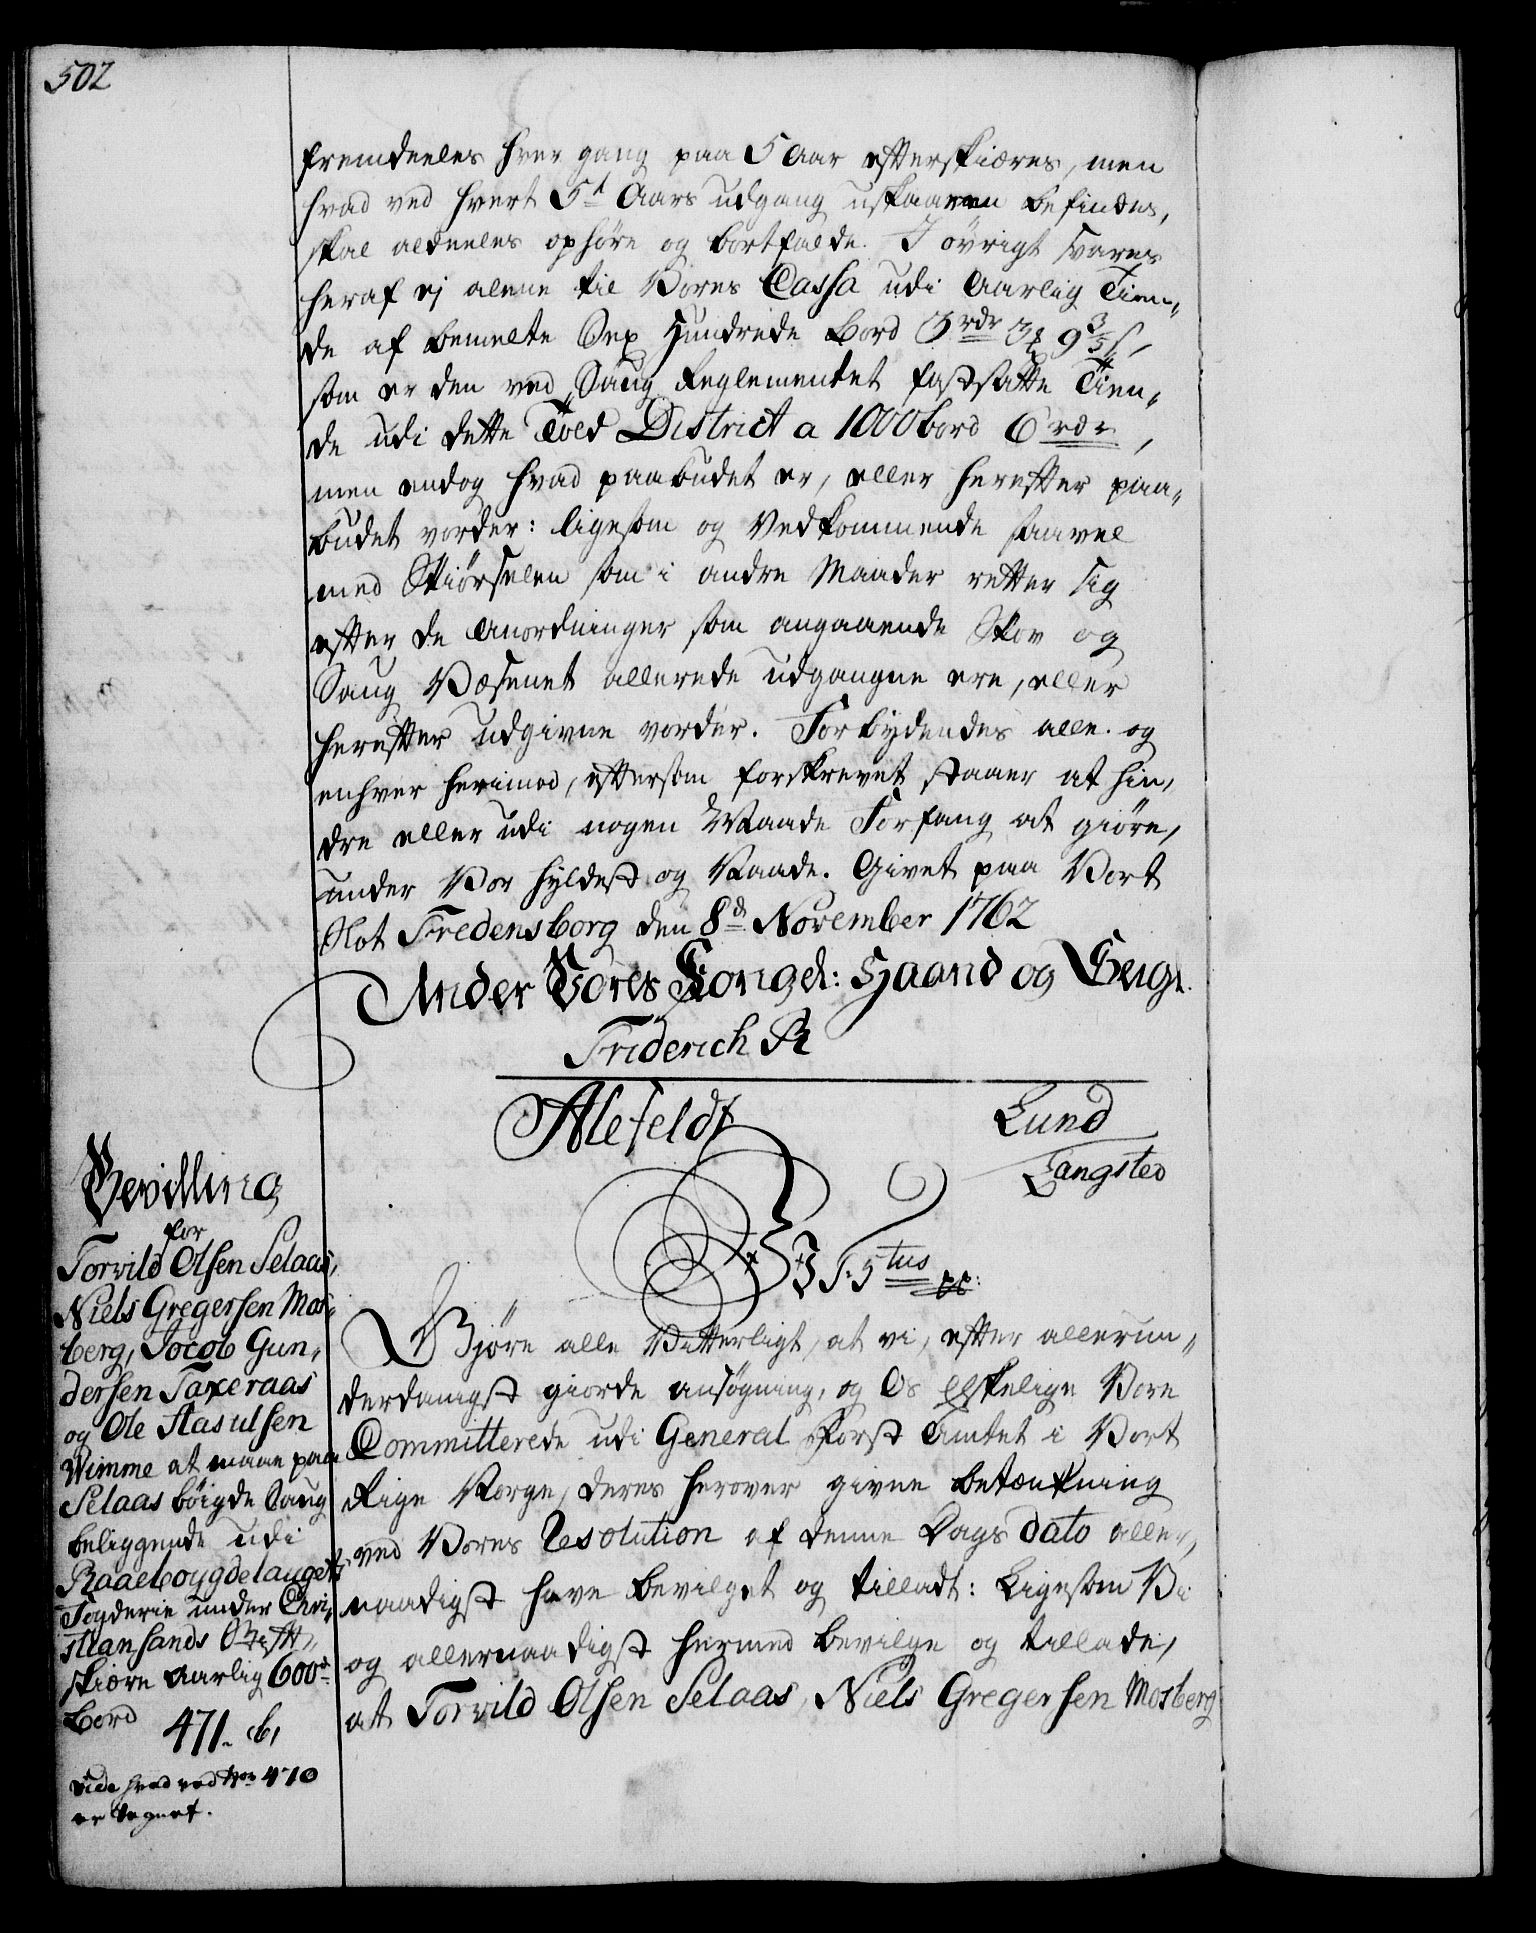 502
fremdeeles hver gang paa 5 Aar efterskiæres, men
hvad ved hvert 5t Aars udgang uskaaren befindes,
skal aldeeles ophøre og bortfalde. I øvrigt svares
heraf ej alene til Vores Cassa udi Aarlig Tien„
de af bemelte Sex Hundrede Bord 3 rdr 3 9 3/5 s,
som er den ved Saug Reglementet fastsatte Tien„
de udi dette Told District a 1000 bord 6 rdr,
men endog hvad paabudet er, eller herefter paa„
budet vorder: ligesom og Vedkommende saavel
med Skiørselen som i andre Maader retter sig
efter de Anordninger som angaaende Skov og
Saug Væsenet allerede udgangne ere, eller
herefter udgivne vorder. Forbydendes alle og
enhver herimod, eftersom forskrevet staaer at hin,
dre eller udi nogen Maade Forfang at giøre,
under Vor hyldest og Naade. Givet paa Vort
Slot Fredensborg den 8d November 1762
Under Vores Kongel: Haand og Seigl.
Friderich R
Alefeldt Lund
Langsted
Bevilling
for
Torvild Olsen Selaas,
Niels Gregersen Mos,
berg, Jocob Gun,
dersen Taxeraas
og Ole Aasulsen
Wimme at maae paa
Selaas bøigde Saug
beliggende udi
Raaeboygdelaugets
Fogderie under Chri,
stiansands Stift,
skiære Aarlig 600d
Bord
471. b,
vide hvad ved Nor 470
er tegnet.
F: 5tus pp:
Giøre alle Vitterligt, at vi, efter allerun„
derdanigst giorde ansøgning, og Os Elskelige Vore
Committerede udi General Forst Amtet i Vort
Rige Norge, deres herover givne betænkning
ved Vores Resolution af denne Dags dato aller,
naadigst have bevilget og tilladt: Ligesom Vi
og allernaadigst hermed bevilge og tillade,
at Torvild Olsen Selaas, Niels Gregersen Mosberg